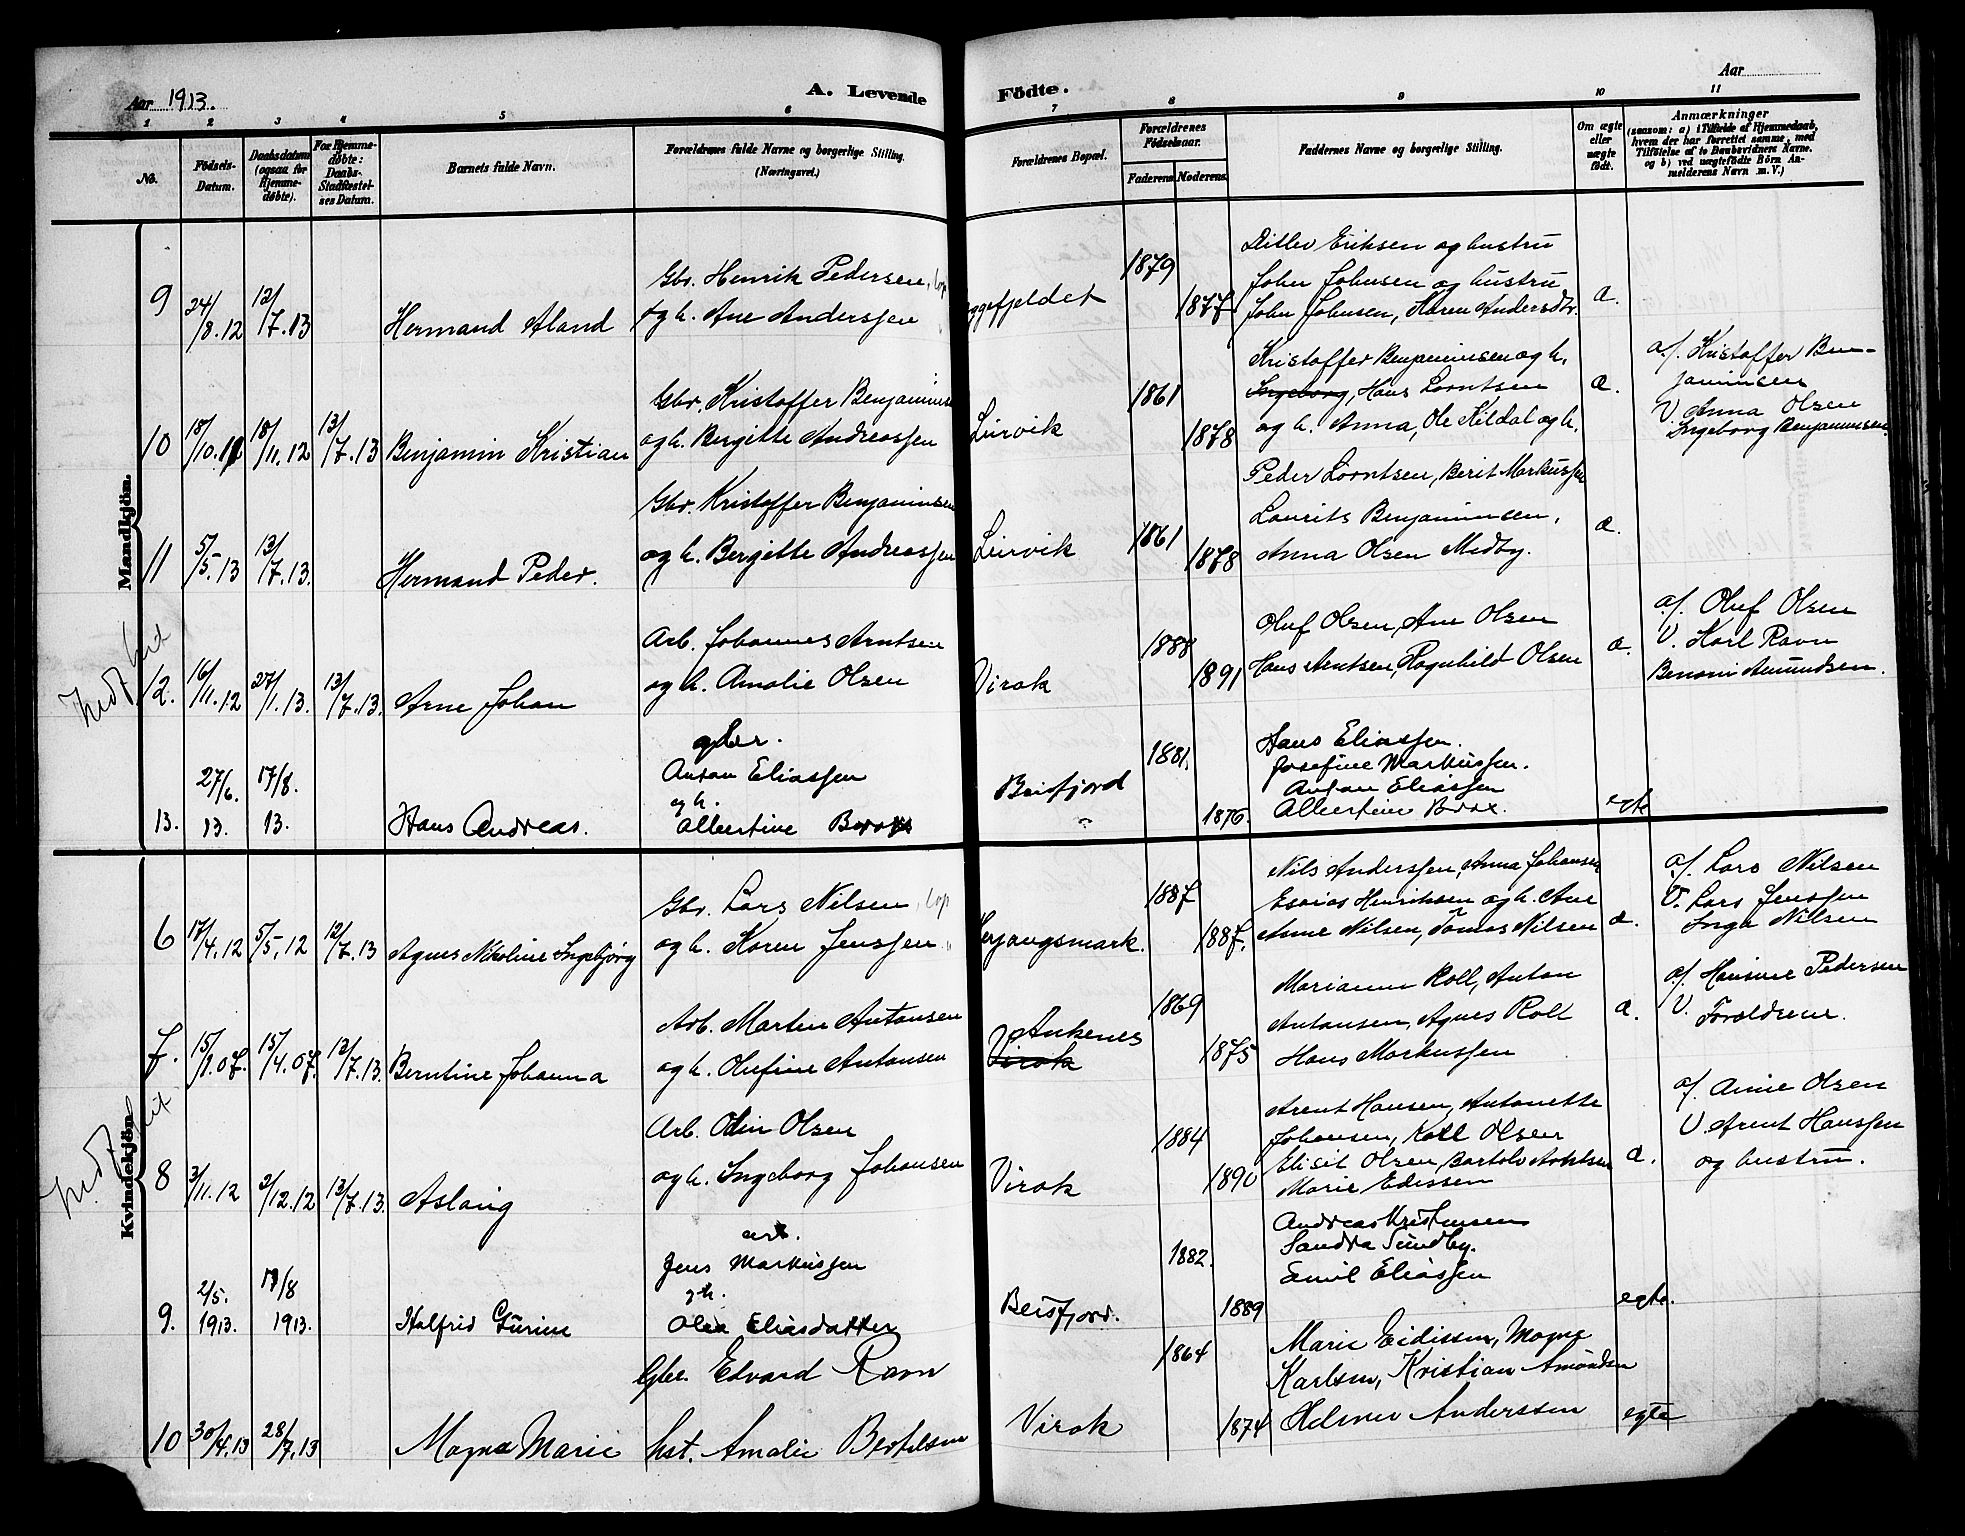 Aar 1913.
A. Levende Fødte.
Aar
1 2 3 4 5 6 7 8 9 10 11
No.
Fødsels-Datum.
Daabsdatum (ogsaa for Hjemmedøbte).
For Hjemmedøbte: Daabs-Stadfæstelses Datum.
Barnets fulde Navn.
Forældrenes fulde Navne og borgerlige Stilling. (Næringsvei.)
Forældrenes Bopæl.
Forældrenes Fødselsaar.
Faderens. Moderens.
Faddernes Navne og borgerlige Stilling.
Om ægte eller uægte født.
Anmærkninger (saasom: a) i Tilfælde af Hjemmedaab, hvem der har forrettet samme, med Tilføielse af to Daabsvidners Navne, og b) ved uægtefødte Børn Anmelderens Navn m. V.)
Mandkjøn.
9 24/8.12 12/7.13 Hermand Aland
Gbr. Henrik Pedersen, lap
og h. Ane Anderssen
ggefjeldet 1879 1877
Ditlev Eriksen og hustru
John Johnsen og hustru
John Johnsen, Karen Andersdtr.
æ.
10 18/10.12 18/11.12 13/7.13 Benjamin Kristian
Gbr. Kristoffer Benjaminsen
og h. Bergitte Andreassen
Lurvik 1861 1878
Kristoffer Benjaminsen og h.
Ingeborg, Hans Lorntsen
og h. Anna, Ole Kildal og h.
æ.
a/. Kristoffer Ben-
jaminsen
V. Anna Olsen
Ingeborg Benjaminsen
11 5/5.13 13/7.13. Hermand Peder.
Gbr. Kristoffer Benjaminsen
og h. Bergitte Andreassen
Lurvik 1861 1878
Peder Lorntsen, Berit Markussen
Laurits Benjaminsen,
Anna Olsen Medby.
æ.
12. 16/11.12 27/1.13. 13/7.13. Arne Johan
Arb. Johannes Arntsen
og h. Amalie Olsen
Virak 1888 1891
Oluf Olsen, Ane Olsen
Hans Arntsen, Ragnhild Olsen
æ.
a/. Oluf Olsen
V. Karl Ravn
Benoni Amundsen.
13. 27/6. 13. 17/8. 13. Hans Andreas.
gbr.
Anton Eliassen
og h.
Albertine Brox
Beisfjord 1881. 1876.
Hans Eliassen.
Josefine Markussen.
Anton Eliassen
Albertine Brox.
egte
Kvindekjøn.
6 17/4.12 5/5.12 12/7.13 Agnes Nikoline Ingebjørg
Gbr. Lars Nilsen, lap
og h. Karen Jenssen "
Herjangsmark. 1887 1887.
Nils Anderssen, Anna Johansen
Esaias Henriksen og h. Ane
Anne Nilsen, Tomas Nilsen
æ.
a/. Lars Nilsen
V. Lars Jenssen
Inga Nilsen
7. 15/1.07. 15/4.07. 12/7.13. Berntine Johanna
Arb. Martin Antonsen
og h. Olufine Antonsen
Ankenes
Virak
1869 1875
Marianne Roll, Anton
Antonsen, Agnes Roll
Hans Markussen
æ.
a/. Hansine Pedersen
V. Forældrene.
8 3/11.12 2/12.12 13/7.13. Aslaug
Arb. Odin Olsen
og h. Ingeborg Johansen
Virak 1884 1890
Arent Hansen, Antonette
Johansen, Kall Olsen
Elisit Olsen, Bartolv Arntsen
Marie Edissen
æ.
a/. Anne Olsen
V. Arent Hanssen
og hustru.
9. 2/5. 1913. 17/8 1913. Halfrid Gurine
arb.
Jens Markussen
g h.
Olea Eliasdatter
Beisfjord. 1882. 1889
Andreas Kristensen
Sandra Sundby.
Emil Eliassen
egte.
10 30/4.13 28/7.13 Magna Marie
Gbr. Edvard Ravn
hst. Amalie Bertelsen
Virak 1864 1874
Marie Eidissen, Magna
Karlsen, Kristian Amundsen
Helmer Anderssen
egte